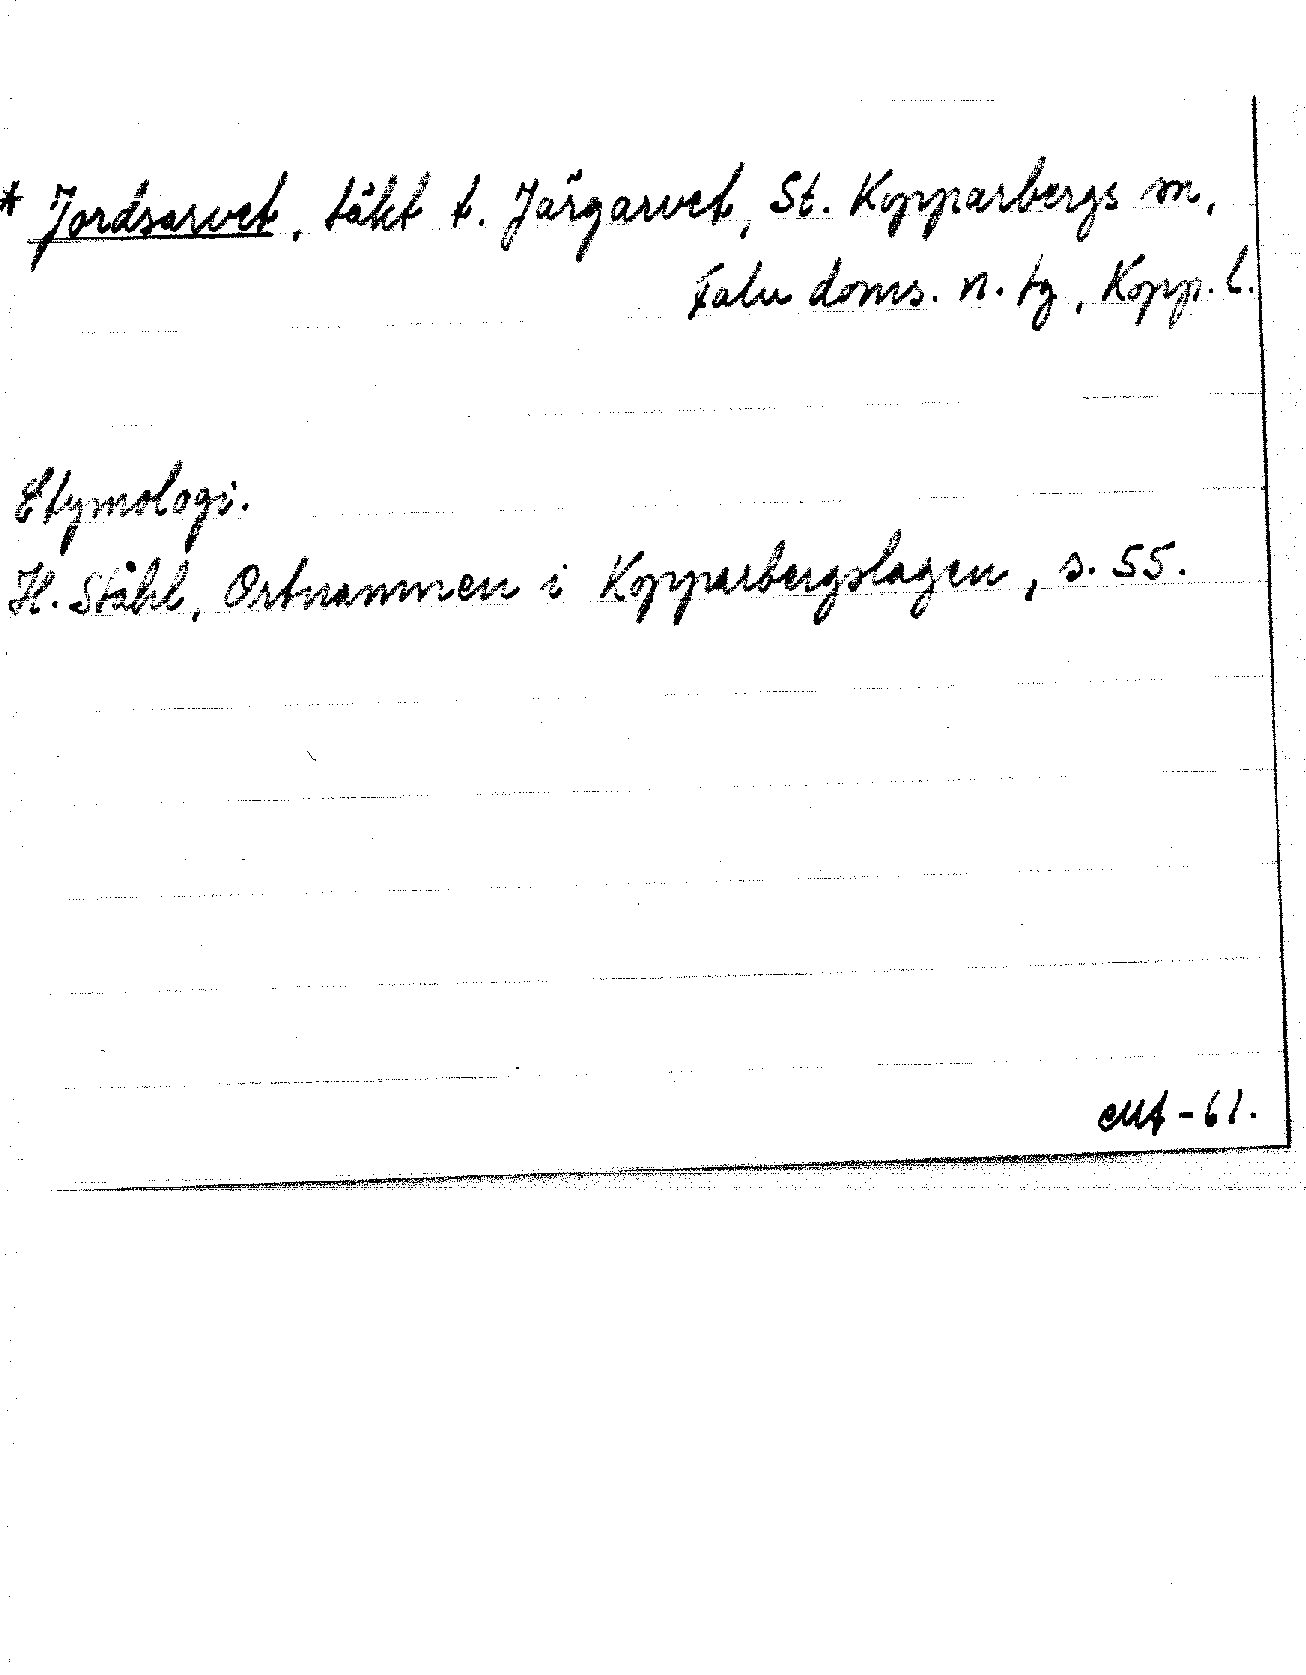 * Jordsarvet, täkt t. Järgarvet, St. Kopparbergs sn,
Falu doms. n. tg, Kopp. l.
Etymologi.
H. Ståhl, Ortnamnen i Kopparbergslagen, s. 55.
-61.